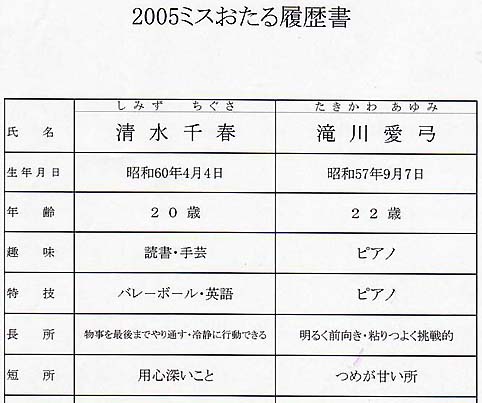 2005ミスおたる履歴書
しみず ちぐさ たきかわ あゆみ
氏 名 清水千春 滝川愛弓
生年月日 昭和60年4月4日 昭和57年9月7日
年 齢 20歳 22歳
趣 味 読書・手芸 ピアノ
特 技 バレーボール・英語 ピアノ
長 所 物事を最後までやり通す・冷静に行動できる 明るく前向き・粘りつよく挑戦的
短 所 用心深いこと つめが甘い所